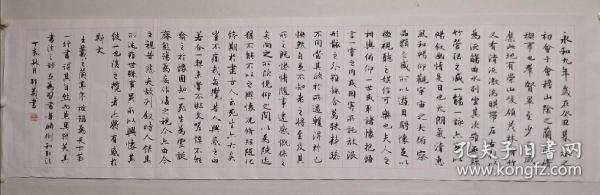 永和九年歲在癸丑暮春之
初會于會稽山陰之蘭亭脩
禊事也群賢畢至少長咸
集此地有崇山峻領茂林脩竹
又有清流激湍映帶左右引以
為流觴曲水列坐其次雖無絲
竹管弦之盛一觴一詠亦足以
暢敘幽情是日也天朗氣清惠
風和暢仰觀宇宙之大俯察
品類之盛所以遊目騁懷足以
極視聽之娛信可樂也夫人之
相與俯仰一世或取諸懷抱悟
言一室之內或因寄所託放浪
形骸之外雖趣舍萬殊靜躁
不同當其欣於所遇暫得於己
快然自足不知老之將至及其
所之既倦情隨事遷感慨係之
矣向之所欣俛仰之間以為陳迹
猶不能不以之興懷況脩短隨化
終期於盡古人云死生亦大矣
豈不痛哉每攬昔人興感之由
若合一契未嘗不臨文嗟悼不能
喻之於懷固知一死生為虛誕
齊彭殤為妄作後之視今亦由今
之視昔悲夫故列敘時人錄其
所述雖世殊事異所以興懷其
致一也後之攬者亦將有感於
斯文
王羲之蘭亭序 天下第
一行書
丁亥秋月
孔夫子旧书网